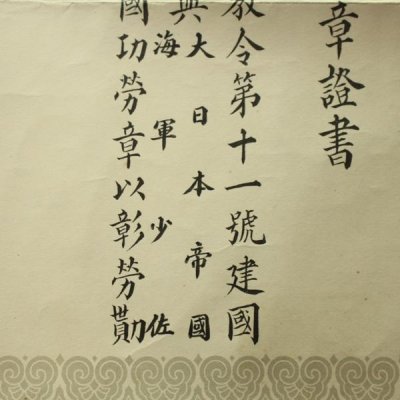 章證書
教令第十一號建國
與大日本帝國
海軍少佐
國功勞章以彰勞勩